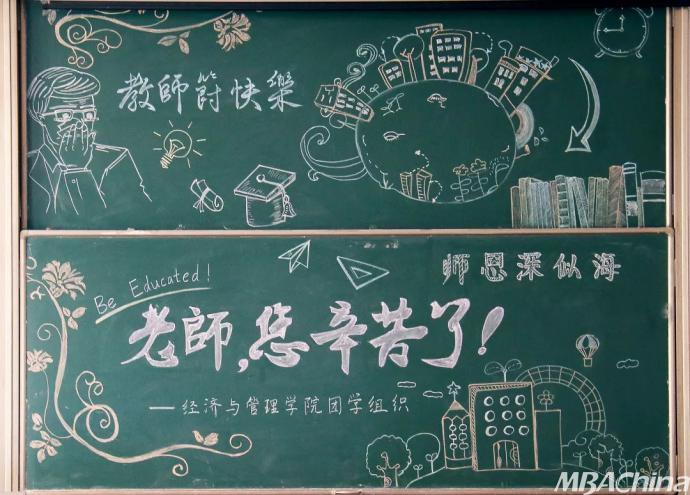 教師節快樂
Be Educated!
师恩深似海
老師,您辛苦了!
—经济与管理学院团学组织
MBAChina